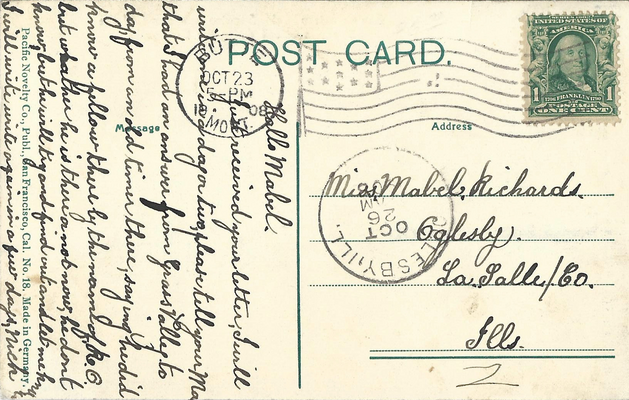 POST CARD.
BUTTE
OCT 23
5-PM
1908
MONT.
SERIES 1902
UNITED STATES OF AMERICA
1
1
1706 FRANKLIN 1790
POSTAGE
ONE CENT
Message
Address
Hello Mabel.
Just received your letter, will
write in a day or two, please tell your Ma
that I had an answer from Grass Valley to
day, from an old timer there, saying he did
know a fellow there by the name of R. C
but whether he is there now or not, he don't
know, but he will try and find out and let me know
I will write again in a few days, Nick
Pacific Novelty Co., Publ., San Francisco, Cal. No. 18. Made in Germany.
Miss Mabel Richards.
Oglesby.
La Salle/Co.
Ills.
OGLESBY ILL.
OCT
26
AM
2